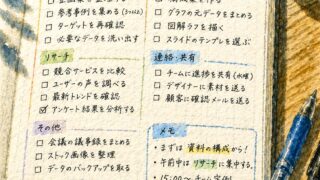 □ 参考事例を集める (3つ以上)
□ ターゲットを再確認
□ 必要なデータを洗い出す
リサーチ
□ 競合サービスを比較
□ ユーザーの声を調べる
□ 最新トレンドを確認
☑ アンケート結果を分析する
その他
□ 会議の議事録をまとめる
□ ストック画像を整理
□ データのバックアップを取る
□ グラフの元データをまとめる
□ 図解ラフを描く
□ スライドのテンプレを選ぶ
連絡・共有
□ チームに進捗を共有
□ デザイナーに素材を送る
□ 顧客に確認メールを送る
メモ
・まずは 資料の構成から!
・午前中は リサーチに集中する。
・15:00〜 チーム定例